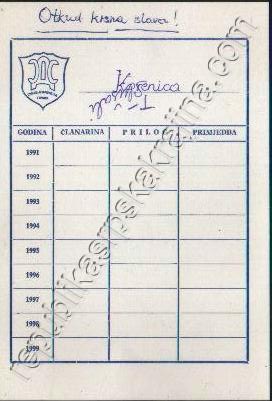 Otkud krsna slava!
Korenica
GODINA ČLANARINA PRILOG PRIMJEDBA
1991
1992
1993
1994
1995
1996
1997
1998
1999
republikasrpskakrajina.com